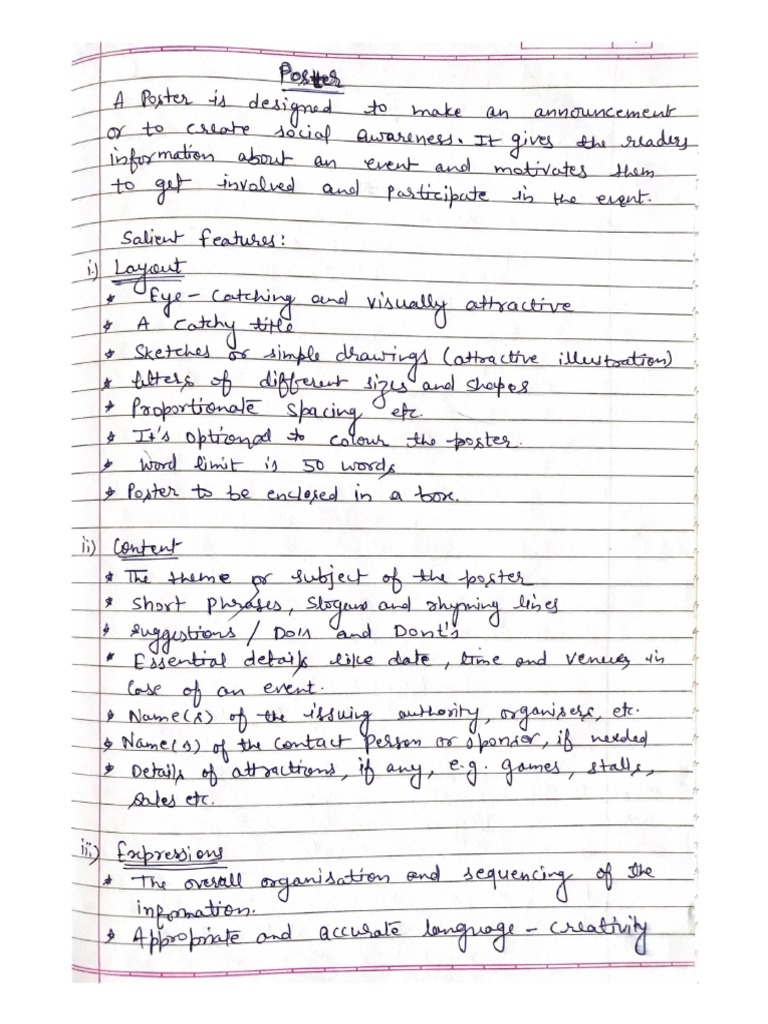 Poster
A Poster is designed to make an announcement
or to create social awareness. It gives the readers
information about an event and motivates them
to get involved and participate in the event.
Salient features:
i.) Layout
* Eye-catching and visually attractive
* A catchy title
* Sketches or simple drawings (attractive illustration)
* letters of different sizes and shapes
* Proportionate spacing etc.
* It's optional to colour the poster.
* Word limit is 50 words
* Poster to be enclosed in a box.
ii) Content
* The theme or subject of the poster
* short phrases, slogans and rhyming lines
* suggestions / Do's and Dont's
* Essential details like date, time and venues in
case of an event.
* Name(s) of the issuing authority, organisers, etc.
* Name(s) of the contact person or sponsor, if needed
* Details of attractions, if any, e.g. games, stalls,
sales etc.
iii) Expressions
* The overall organisation and sequencing of the
information.
* Appropriate and accurate language - creativity